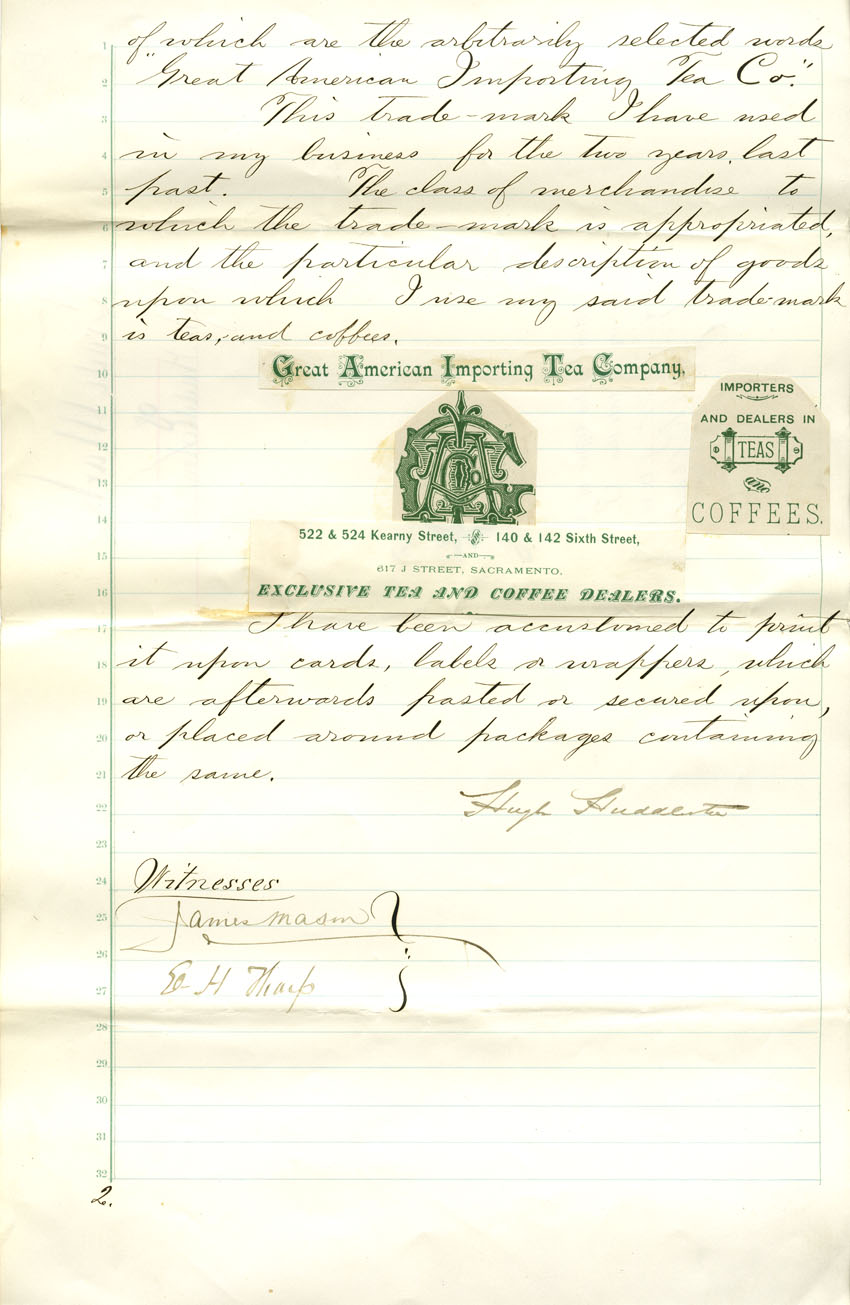 1 of which are the arbitrarily selected words
2 "Great American Importing Tea Co."
3 This trade-mark I have used
4 in my business for the two years, last
5 past. The class of merchandise to
6 which the trade-mark is appropriated,
7 and the particular description of goods
8 upon which I use my said trade-mark
9 is teas, and coffees.
10 Great American Importing Tea Company,
11
12
13
14
IMPORTERS
AND DEALERS IN
TEAS
and
COFFEES.
522 & 524 Kearny Street, 140 & 142 Sixth Street,
15 —AND—
617 J STREET, SACRAMENTO,
16 EXCLUSIVE TEA AND COFFEE DEALERS.
17 I have been accustomed to print
18 it upon cards, labels or wrappers, which
19 are afterwards pasted or secured upon,
20 or placed around packages containing
21 the same.
22 Hugh Huddleston
23
24 Witnesses
25 James Mason
26
27 E H Tharp
28
29
30
31
32
2.